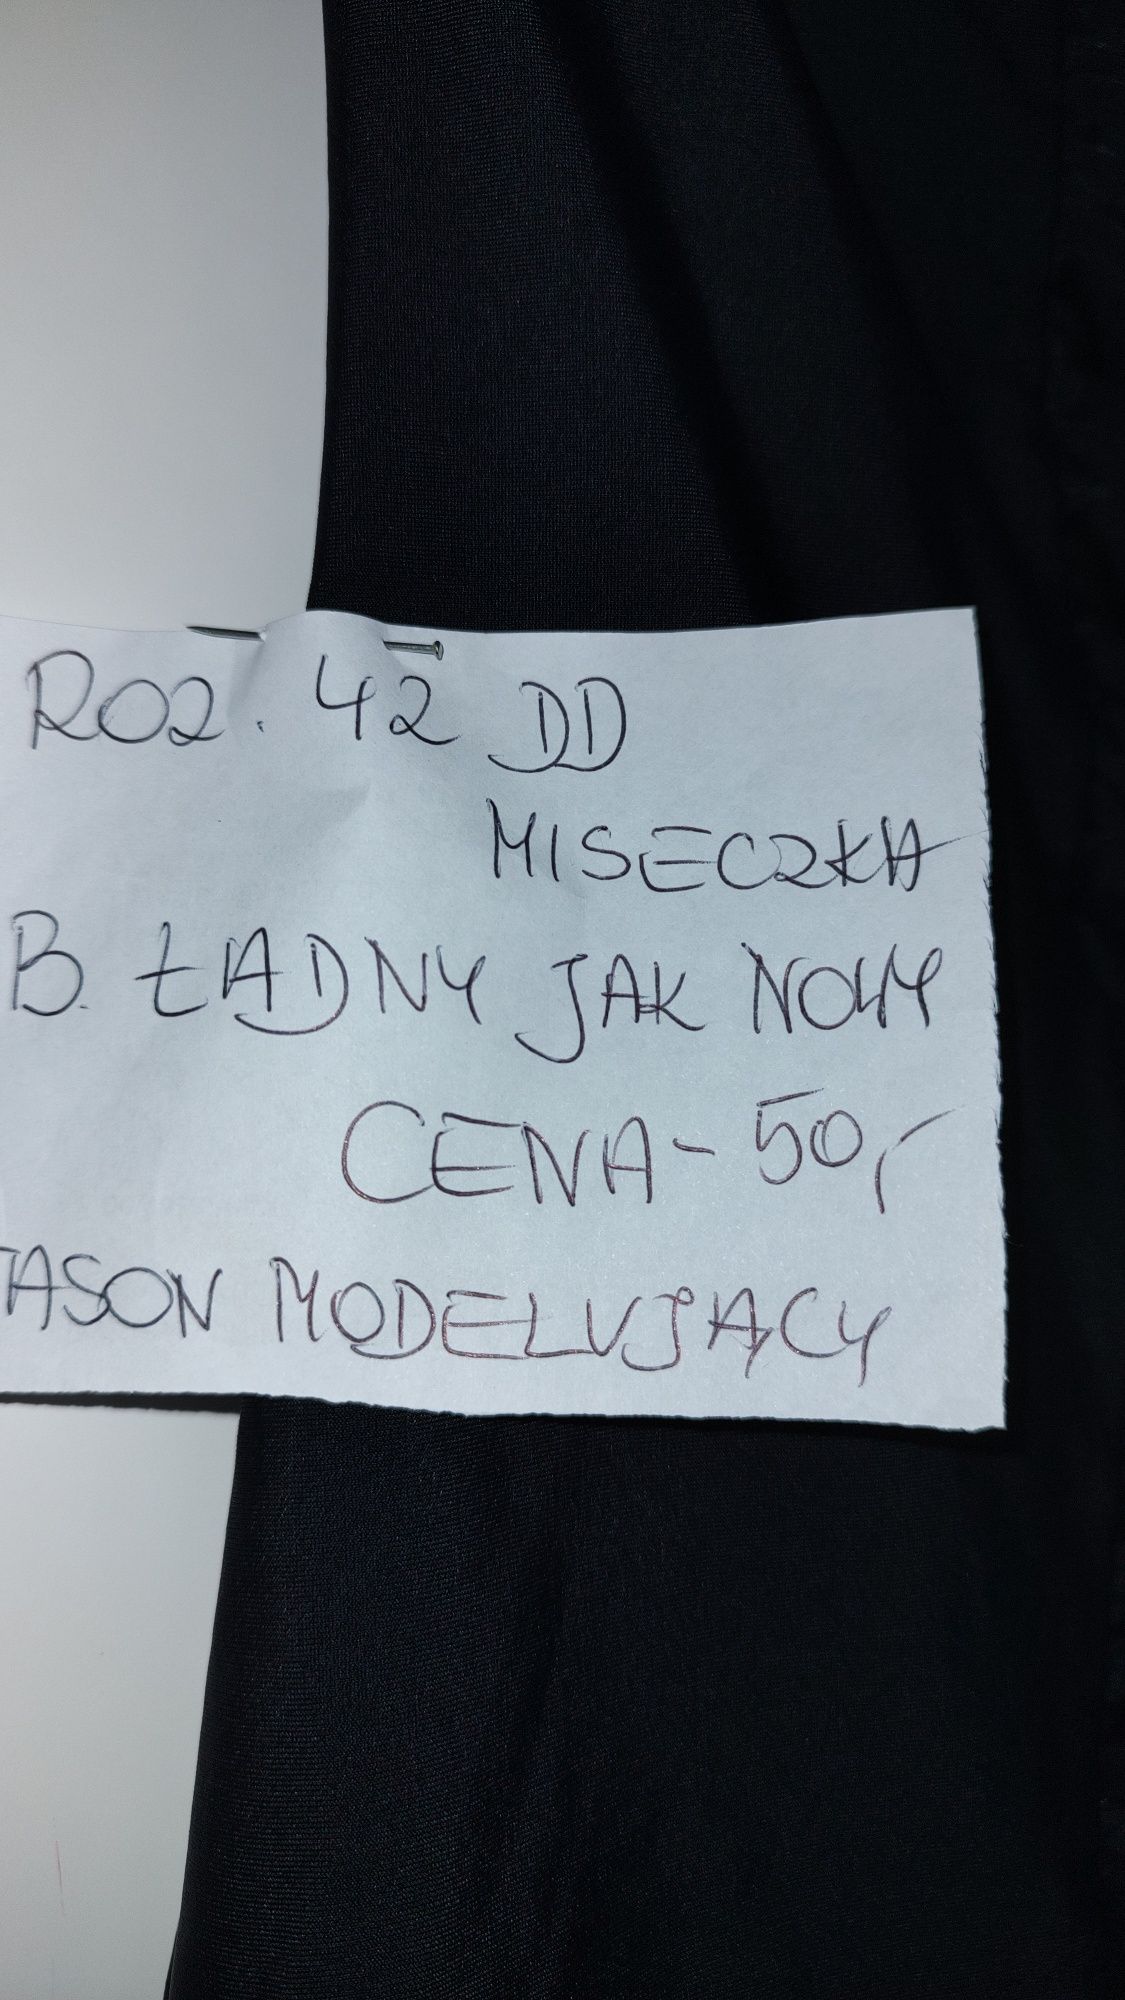 ROZ. 42 DD
MISECZKA
B. ŁADNY JAK NOWY
CENA - 50,-
FASON MODELUJĄCY